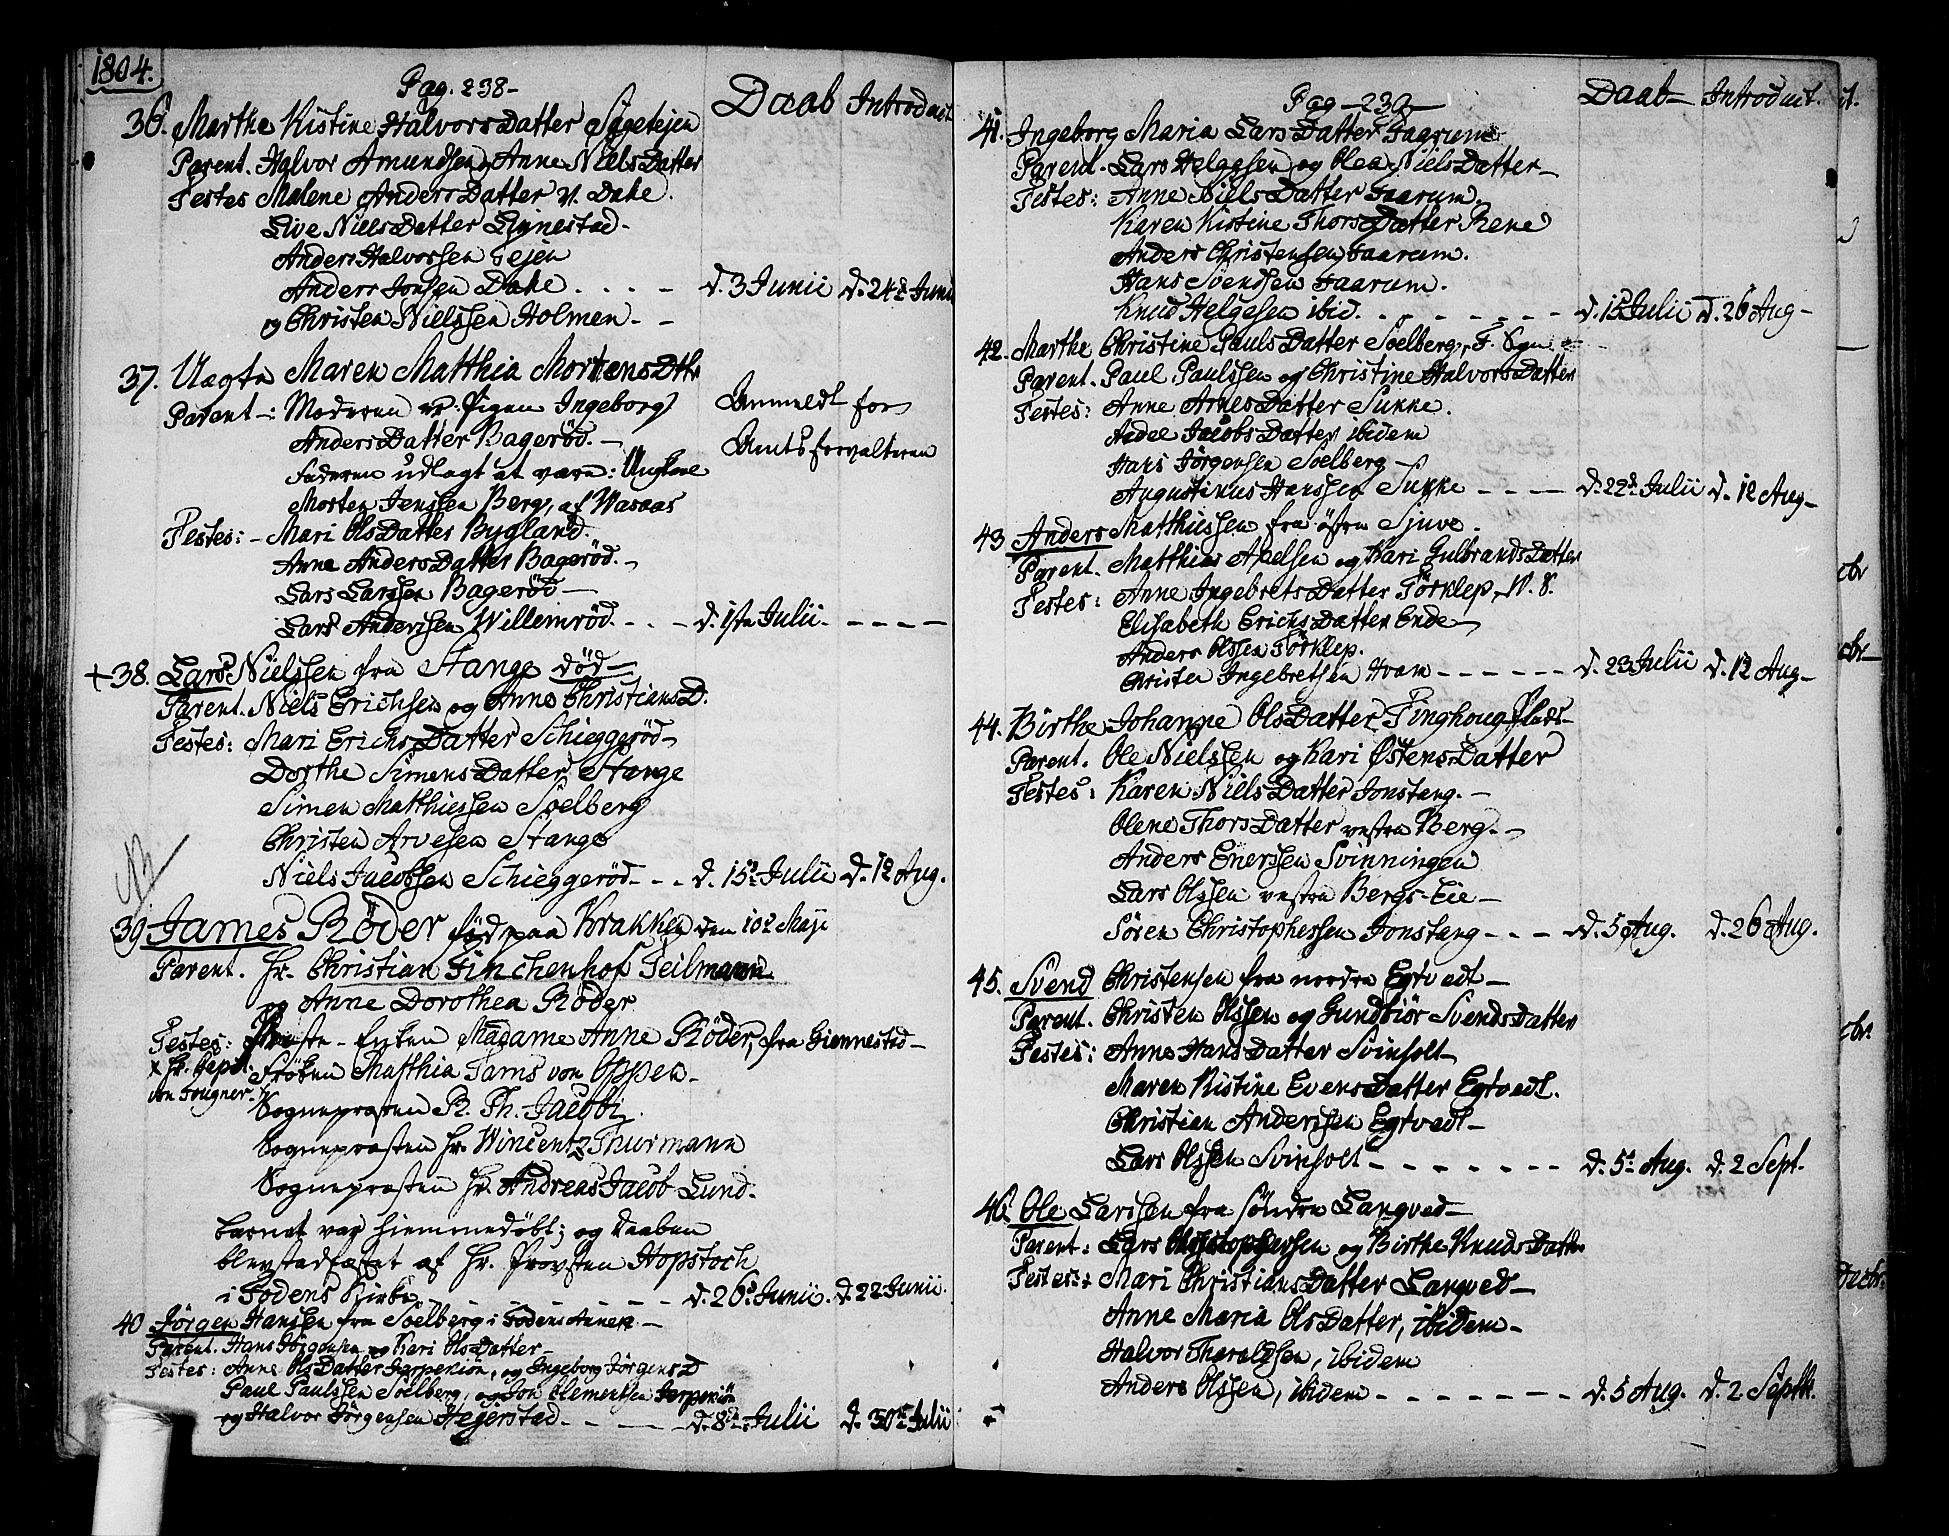 1804.
Pag. 238-
Daab Introduct.
36. Marthe Kistine HalvorsDatter
Parent. Halvor Amundsen, Anne NielsDatter
Testes Malene AndersDatter v. Dahe.
Live NielsDatter Lignestad-
Anders Halvorssen Tejen
Anders Jonsen Dahe . . . - d. 3 Junii d. 24de Junii
og Christen Nielssen Holmen - -
37. Uægte Maren Matthia MortensDtr
Parent-: Moderen er Pigen Ingeborg Anmeldt for
AndersDatter Bageröd. - Amtsforvalteren
Faderen udlagt at være: Ungkarl
Morten Jenssen Berg, af Wasaas
Testes: - Mari OlsDatter Bygland.
Anne AndersDatter Bageröd. -
Lars Larssen Bageröd -
Lars Anderssen Willemröd. - . - d. 1ste Julii. - - - -
+38. Lars Nielssen fra Stange död -
Parent. Niels Erichsen og Anne ChristiansD.
Testes: Mari ErichsDatter Schieggeröd-
Dorthe SimensDatter Stange
Simen Matthiessen Soelberg
Christen Arvesen Stange
Niels Jacobsen Schieggeröd - - - d. 15de Julii d. 12 Aug.
NB
39 James Röder föd paa Krakken den 10de Maji
Parent. Hr. Christian Finchenhof Teilmann
og Anne Dorothea Röder
Testes: Provste-Enken Madame Anne Röder, fra Hiennestad -
x Hr. Capt. Fröken Matthia Tams von Oppen -
von Tougner. Sognepræsten R. Th. Jacobi
Sognepræsten Hr. Wincentz Thurmann
Sognepræsten Hr. Andreas Jacob Lund.
Barnet var hiemmedöbt; og Daaben
blev stadfæstet af Hr. Provsten Hopstoch
i Fodens Kirke - - - - - - d. 26de Junii. d. 22 Junii.
40 Jörgen Hanssen fra Soelberg i Fodens Annex -
Parent. Hans Jörgensen og Kari OlsDatter -
Testes: Anne OlsDatter Jarperiön, og Ingeborg JörgensD
Paul Paulssen Soelberg, og Jon Clementsen Jarperiön
og Halvor Jörgensen Hegerstad - - - - d. 8de Julii d. 30te Julii
Pag - 239 -
Daab - Introduct.
41. Ingeborg Maria LarsDatter Faarum
Parent. Lars Helgesen og Olea NielsDatter -
Testes: Anne NielsDatter Faarum.
Karen Kistine ThorsDatter Rene
Anders Christensen Faarum.
Hans Svendsen Faarum.
Knud Helgesen ibid. . - - - - - - d. 15 Julii d. 26 Aug -
42. Marthe Christine PaulsDatter Soelberg, F. Sgn
Parent. Paul Paulssen og Christine HalvorsDatter
Testes: Anne ArnesDatter Sukke.
Aadel JacobsDatter ibidem
Hans Jörgensen Soelberg -
Augustinus Hanssen Sukke - - - - d. 22de Julii d. 12 Aug -
43 Anders Matthiessen fra östre Sjuve.
Parent. Matthias Axelsen og Kari GulbrandsDatter
Testes: Anne IngebretsDatter Törklep N. S.
Elisabeth ErichsDatter Ende -
Anders Olssen Törklep.
Christen Ingebretsen Hvam - - - - - - d. 23 Julii d. 12 Aug -
44. Birthe Johanne OlsDatter Tinghoug-Plads -
Parent. Ole Nielssen og Kari ØstensDatter
Testes: Karen NielsDatter Jonstang. -
Olene ThorsDatter vestre Berg. -
Anders Enerssen Svinningen
Lars Olssen vestre Bergs-Eie -
Sören Christophessen Jonstang - - - d. 5 Aug. d. 26 Aug.
45. Svend Christensen fra nordre Egtvedt -
Parent. Christen Olssen og Gundbiör SvendsDatter
Testes: Anne HansDatter Svinholt -
Maren Kistine EvensDatter Egtvedt.
Christian Anderssen Egtvedt -
Lars Olssen Svinholt - - - - - - - d. 5te Aug. d. 2 Sept.
46. Ole Larssen fra söndre Langved -
Parent: Lars Christophersen og Birthe KnudsDatter
Testes: Mari ChristiansDatter Langved -
Anne Maria OlsDatter, ibidem -
Halvor Tharaldsen, ibidem
Anders Olssen, ibidem - - - - - - - d. 5 Aug. d. 2 Septbr.